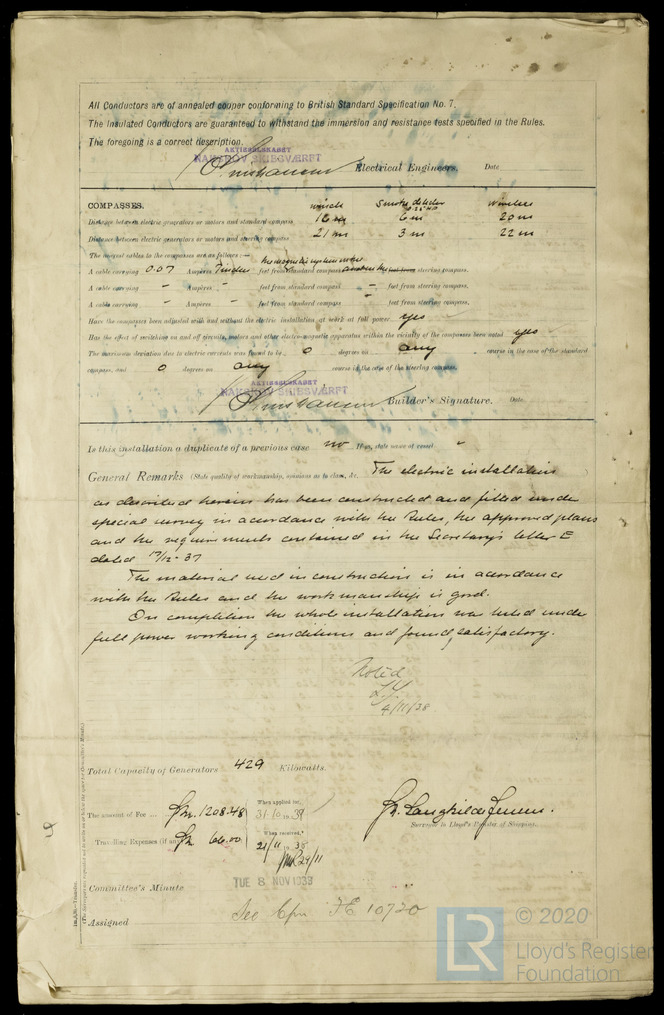 All Conductors are of annealed copper conforming to British Standard Specification No. 7.
The Insulated Conductors are guaranteed to withstand the immersion and resistance tests specified in the Rules.
The foregoing is a correct description.
AKTIESELSKABET
NAKSKOV SKIBSVÆRFT
Electrical Engineers. Date
COMPASSES. winch Wireless
Distance between electric generators or motors and standard compass 6 m 20 m
Distance between electric generators or motors and steering compass 21 m 3 m 22 m
The nearest cables to the compasses are as follows:—
A cable carrying 0.07 Ampères feet from standard compass feet from steering compass.
A cable carrying - Ampères - feet from standard compass - feet from steering compass.
A cable carrying - Ampères - feet from standard compass - feet from steering compass.
Have the compasses been adjusted with and without the electric installation at work at full power yes
Has the effect of switching on and off circuits, motors and other electro-magnetic apparatus within the vicinity of the compasses been noted yes
The maximum deviation due to electric currents was found to be 0 degrees on any course in the case of the standard
compass, and 0 degrees on any course in the case of the steering compass.
AKTIESELSKABET
NAKSKOV SKIBSVÆRFT
Builder's Signature. Date
Is this installation a duplicate of a previous case no If so, state name of vessel
General Remarks (State quality of workmanship, opinions as to class, &c. The electric installation
as described herein has been constructed and fitted under
special survey in accordance with the Rules, the approved plans
and the requirements contained in the Secretary's letter E
dated 17/12-37
The material used in construction is in accordance
with the Rules and the workmanship is good.
On completion the whole installation was tested under
full power working conditions and found satisfactory.
Noted
4/11/38
Total Capacity of Generators 429 Kilowatts.
The amount of Fee Kr. 1208.48 When applied for, 31.10.38
Travelling Expenses (if any) Kr. 66.00 When received, 21/11 1938
24/11
Surveyor to Lloyd's Register of Shipping.
Committee's Minute TUE 8 NOV 1938
Assigned See Cpn FE 10720
LR
© 2020
Lloyd's Register
Foundation